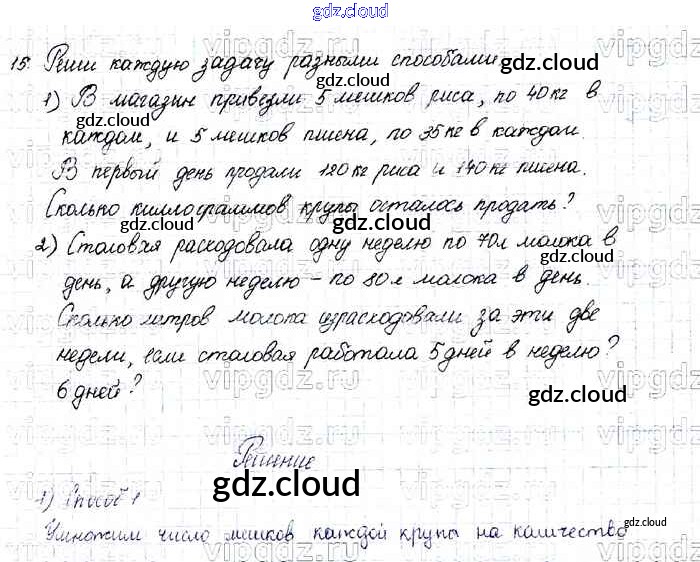 gdz.cloud
15. Реши каждую задачу разными способами
gdz.cloud
1) В магазин привезли 5 мешков риса, по 40 кг в
gdz.cloud
каждом, и 5 мешков пшена, по 35 кг в каждом.
В первый день продали 120 кг риса и 140 кг пшена.
Сколько киллограммов крупы осталось продать?
gdz.cloud
2) Столовая расходовала одну неделю по 70 л молока в
день, а другую неделю – по 80 л молока в день.
gdz.cloud
Сколько литров молока израсходовали за эти две
недели, если столовая работала 5 дней в неделю?
6 дней?
gdz.cloud
Решение
gdz.cloud
1) Способ 1
Умножим число мешков каждой крупы на количество
gdz.cloud
vipgdz.ru